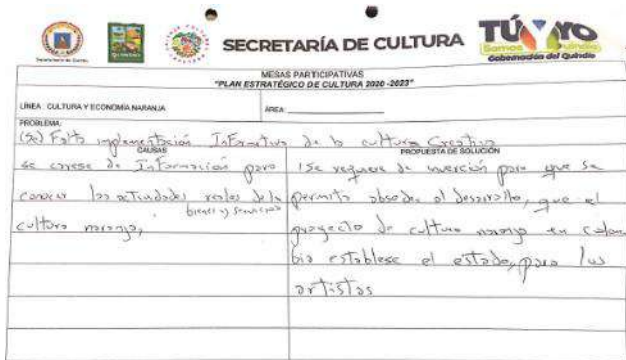 SECRETARÍA DE CULTURA
TÚ Y YO
Somos Quindío
Gobernación del Quindío
MESAS PARTICIPATIVAS
"PLAN ESTRATÉGICO DE CULTURA 2020 -2023"
LÍNEA: CULTURA Y ECONOMÍA NARANJA
ÁREA:
PROBLEMA:
(Se) Falta implementación Informativa de la cultura Creativa
CAUSAS
PROPUESTA DE SOLUCIÓN
se carese de Información para
conocer las actividades reales de la
bienes y servicios
cultura naranja,
Se requiere de inverción para que se
permita abseder al desarrollo, que el
proyecto de cultura naranja en Colom
bia establese el estado, para los
artistas